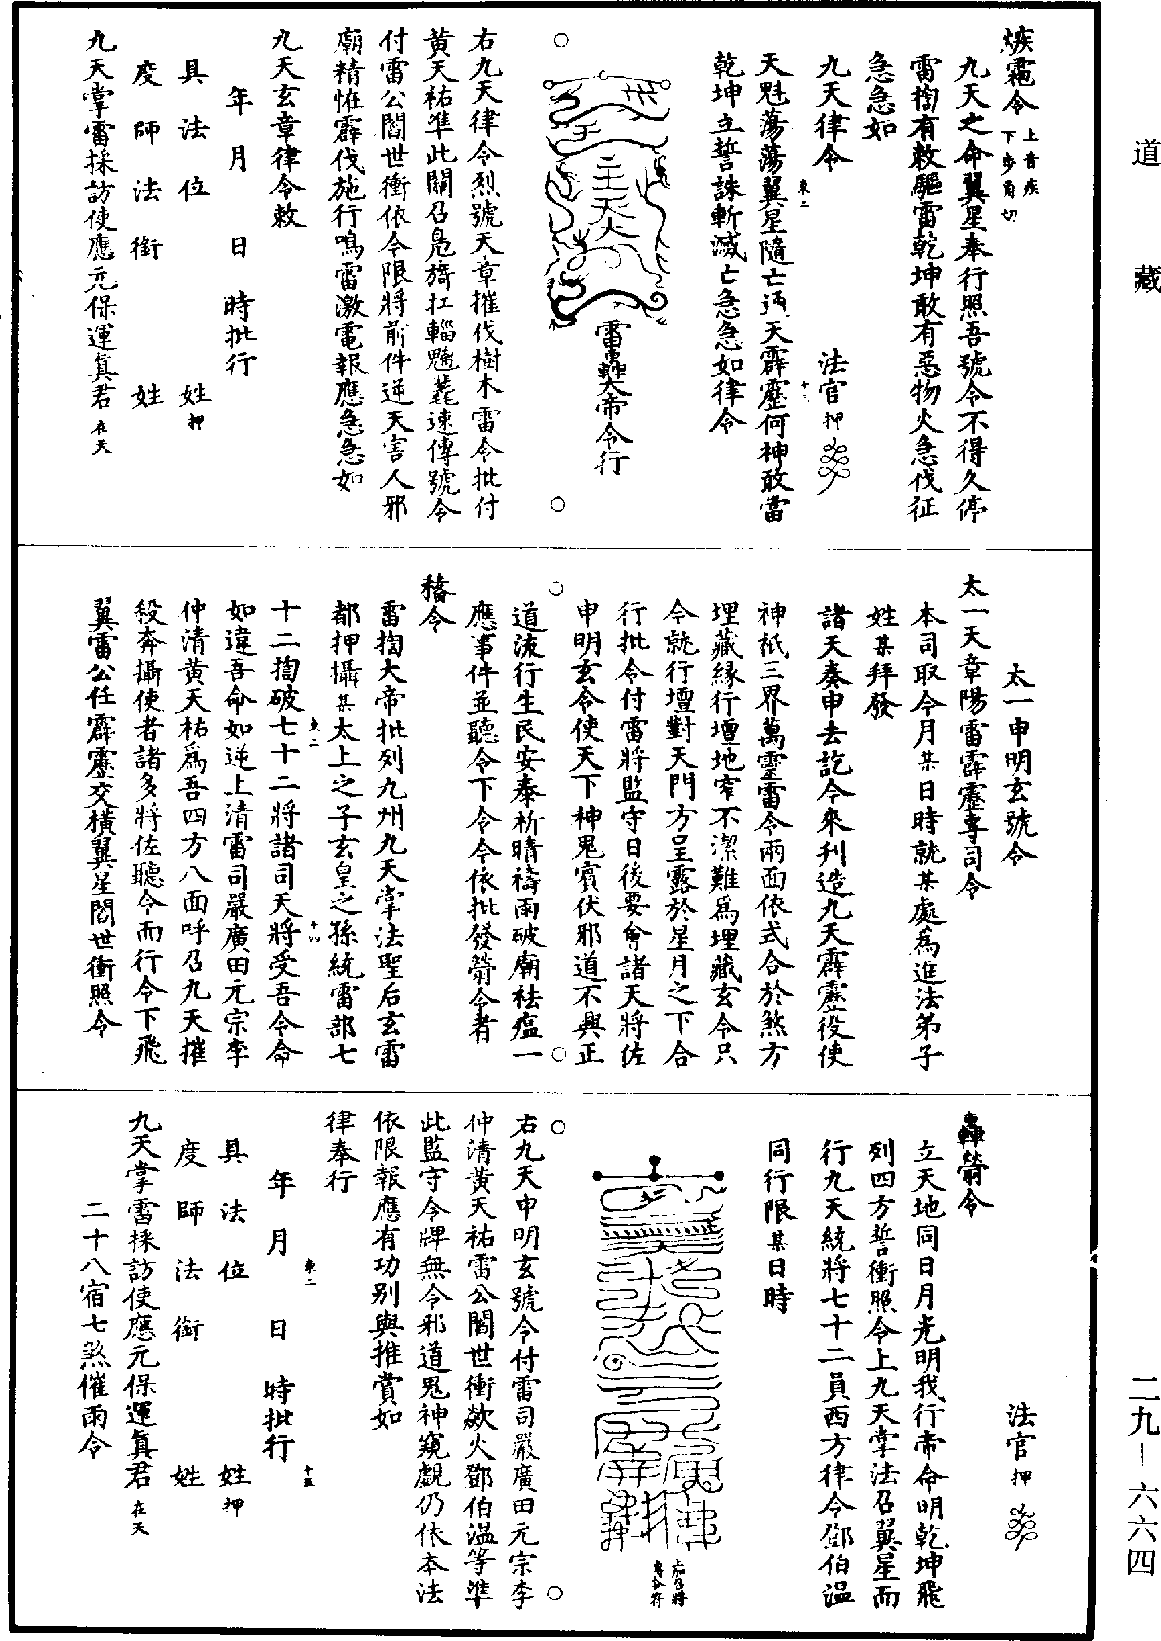 道藏
熫雹令上音疾下步角切
九天之命翼星奉行照吾號令不得久停
雷掏有敕驅雷乾坤敢有惡物火急伐征
急急如
九天律令　法官押
天魁蕩蕩翼星隨亡過天霹靂何神敢當
乾坤立誓誅斬滅亡急急如律令
雷轟大帝令行
右九天律令烈號天章摧伐樹木雷令批付
黃天祐準此關召晁旖扛輜魑㲲速傳號令
付雷公閻世衝依令限將前件逆天害人邪
廟精怪霹伐施行鳴雷激電報應急急如
九天玄章律令敕
年　月　日　時批行
具　法　位　姓押
度　師　法　銜　姓
九天掌雷採訪使應元保運眞君在天
太一申明玄號令
太一天章陽雷霹靂專司令
本司取今月某日時就某處爲進法弟子
姓某拜發
諸天奏申去訖今來刋造九天霹靂役使
神祇三界萬靈雷令兩面依式合於煞方
埋藏緣行壇地窄不潔難爲埋藏玄令只
今就行壇對天門方呈露於星月之下合
行批令付雷將監守日後要會諸天將佐
申明玄令使天下神鬼賓伏邪道不興正
道流行生民安泰祈晴禱雨破廟祛瘟一
應事件並聽令下令令依批發箭令者
䅵令
雷掏大帝批列九州九天掌法聖后玄雷
都押攝某太上之子玄皇之孫統雷部七
十二掏破七十二將諸司天將受吾令命
如違吾命如逆上清雷司嚴廣田元宗李
仲清黃天祐爲吾四方八面呼召九天摧
殺奔攝使者諸多將佐聽令而行令下飛
翼雷公任霹靂交橫翼星閻世衝照令
法官押
轟箭令
立天地同日月光明我行帝命明乾坤飛
列四方誓衝照令上九天掌法召翼星而
行九天統將七十二員西方律令鄧伯溫
同行限某日時
右九天申明玄號令付雷司嚴廣田元宗李
仲清黃天祐雷公閻世衝歘火鄧伯溫等準
此監守令牌無令邪道鬼神窺覷仍依本法
依限報應有功別與推賞如
律奉行
年　月　日　時批行
具　法　位　姓押
度　師　法　銜　姓
九天掌雷採訪使應元保運眞君在天
二十八宿七煞催雨令
二九—六六四